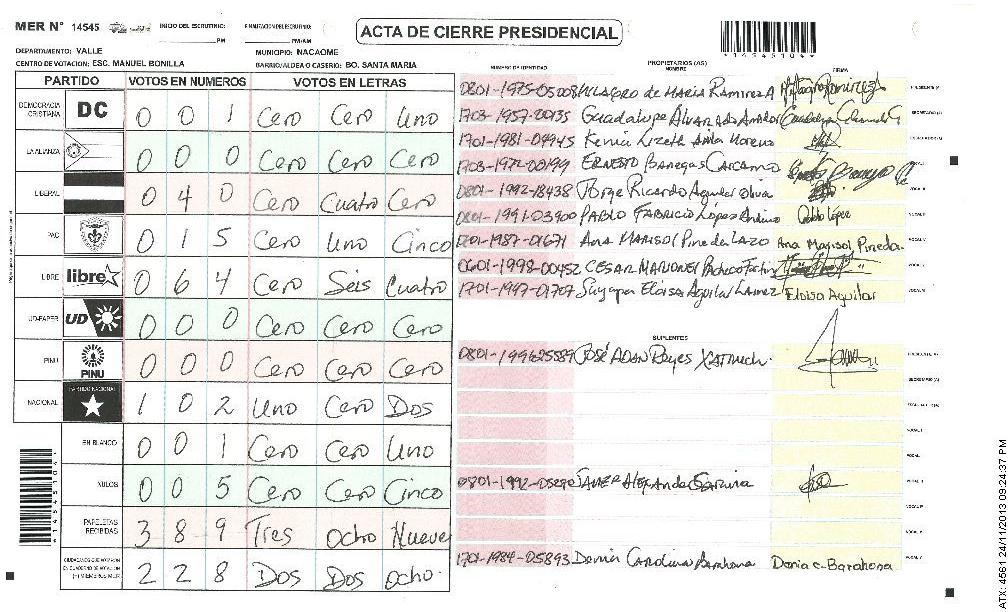 MER Nº 14545 INICIO DEL ESCRUTINIO: FINALIZACION DEL ESCRUTINIO:
PM PM/AM
ACTA DE CIERRE PRESIDENCIAL
*14545104*
DEPARTAMENTO: VALLE MUNICIPIO: NACAOME
CENTRO DE VOTACION: ESC. MANUEL BONILLA BARRIO/ALDEA O CASERIO: BO. SANTA MARIA
PARTIDO VOTOS EN NUMEROS VOTOS EN LETRAS
DEMOCRACIA CRISTIANA DC 0 0 1 Cero Cero Uno
LA ALIANZA 0 0 0 Cero Cero Cero
LIBERAL 0 4 0 Cero Cuatro Cero
PAC 0 1 5 Cero Uno Cinco
LIBRE libre 0 6 4 Cero Seis Cuatro
UD-FAPER UD 0 0 0 Cero Cero Cero
PINU PINU 0 0 0 Cero Cero Cero
NACIONAL PARTIDO NACIONAL 1 0 2 Uno Cero Dos
EN BLANCO 0 0 1 Cero Cero Uno
NULOS 0 0 5 Cero Cero Cinco
PAPELETAS RECIBIDAS 3 8 9 Tres Ocho Nueve
CIUDADANOS QUE VOTARON EN CUADERNO DE VOTACION (+) MIEMBROS MER 2 2 8 Dos Dos Ocho
NUMERO DE IDENTIDAD PROPIETARIOS (AS) NOMBRE FIRMA
0801-1975-05008 Milagro de Maria Ramirez A
1703-1957-00135 Guadalupe Alvarado
1701-1981-04945 Kenia Lizeth Avila Moreno
1703-1972-00199 Ernesto Banegas Carcamo
0801-1992-18438 Jorge Ricardo Aguilar Oliva
0801-1991-03900 Pablo Fabricio López Pablo López
1701-1987-01671 Ana Marisol Pineda Lazo Ana Marisol Pineda
0601-1998-00452 Cesar
1701-1997-01707 Suyapa Eloisa Aguilar Eloisa Aguilar
SUPLENTES
José Adan Reyes
0801-1992-05290
1701-1984-05893 Denia Carolina Barahona Denia C. Barahona
ATX: 4561 24/11/2013 09:24:37 PM